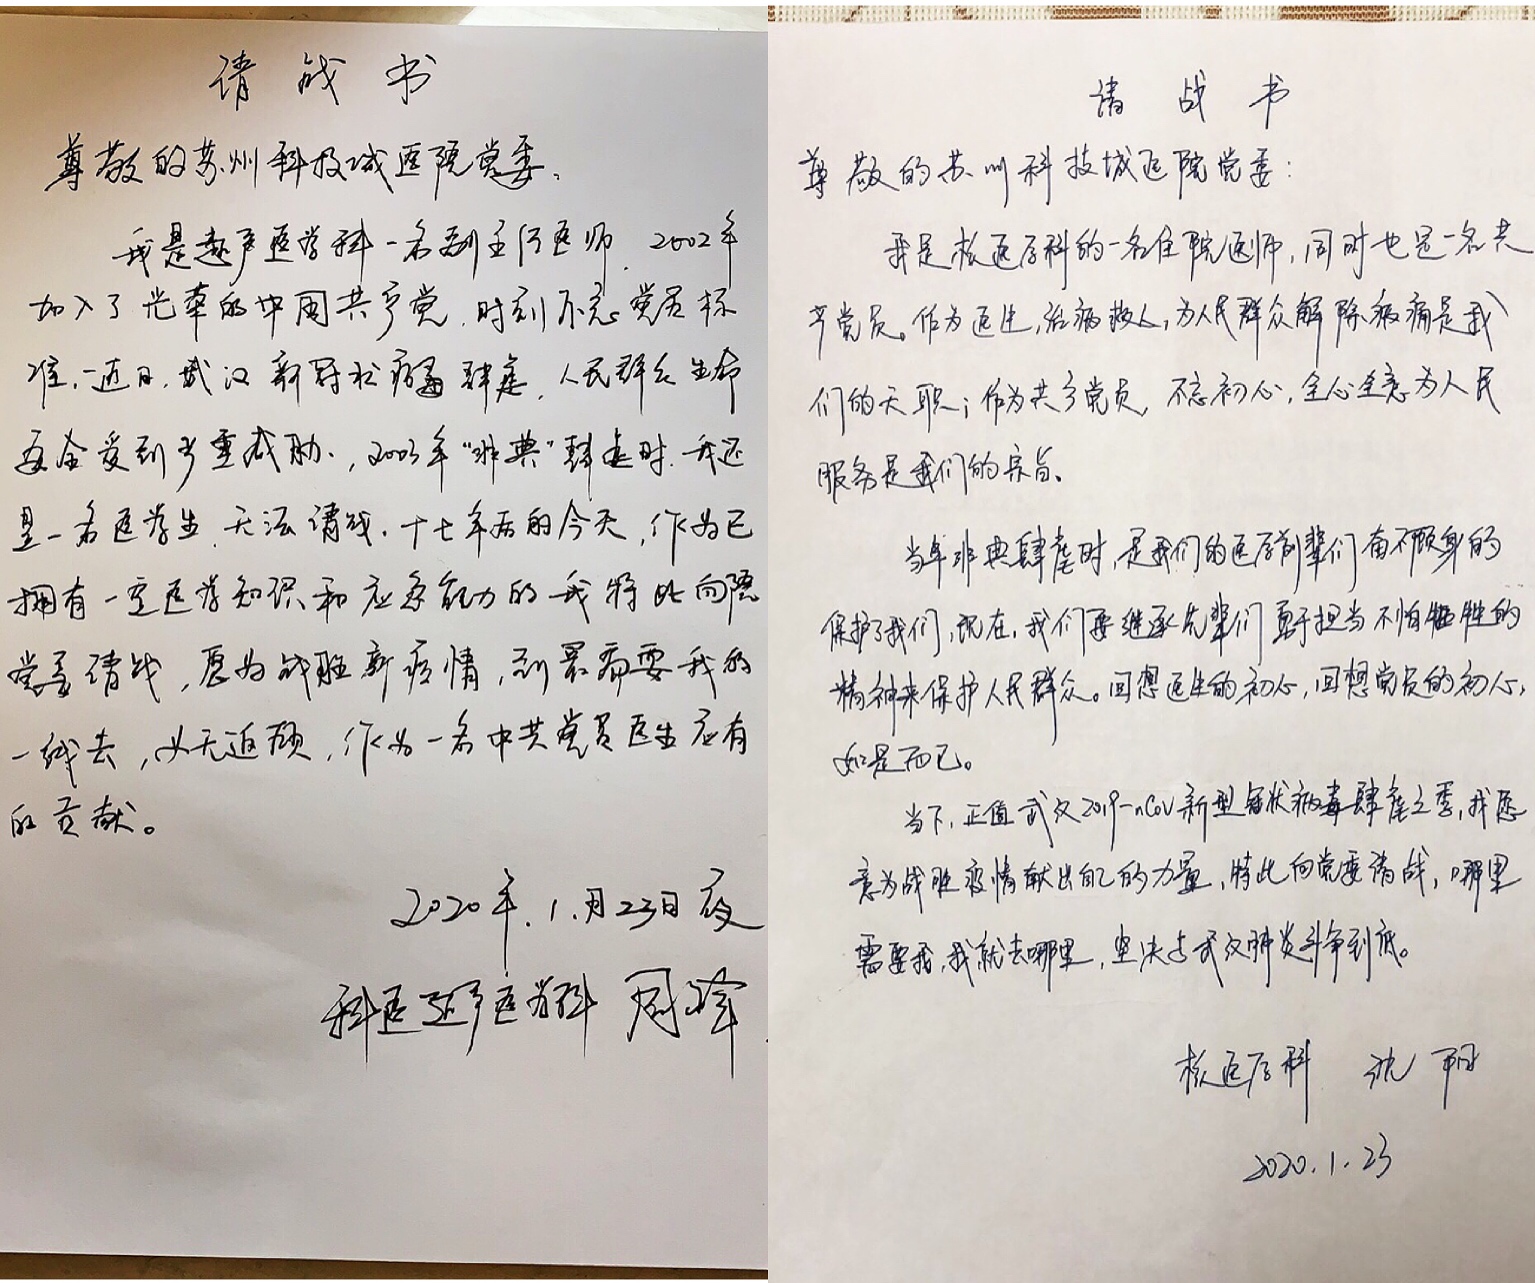 请战书
尊敬的苏州科技城医院党委。
我是超声医学科一名副主任医师，2002年
加入了光荣的中国共产党，时刻不忘党员标
准，近日，武汉新冠状病毒肆虐，人民群众生命
安全受到严重威胁，2003年“非典”肆虐时，我还
是一名医学生，无法请战，十七年后的今天，作为已
拥有一定医学知识和应急能力的我特此向院
党委请战，愿为战胜新疫情，到最需要我的
一线去，义无返顾，作为一名中共党员医生应有
的贡献。
2020年.1.月23日夜
科医超声医学科 周锋
请战书
尊敬的苏州科技城医院党委：
我是核医学科的一名住院医师，同时也是一名共
产党员。作为医生，治病救人，为人民群众解除病痛是我
们的天职；作为共产党员，不忘初心，全心全意为人民
服务是我们的宗旨。
当年非典肆虐时，是我们的医学前辈们奋不顾身的
保护了我们，现在，我们要继承先辈们勇于担当不怕牺牲的
精神来保护人民群众。回想医生的初心，回想党员的初心，
如是而已。
当下，正值武汉2019-nCoV新型冠状病毒肆虐之季，我愿
意为战胜疫情献出自己的力量，特此向党委请战，哪里
需要我，我就去哪里，坚决与武汉肺炎斗争到底。
核医学科 沈阳
2020.1.23